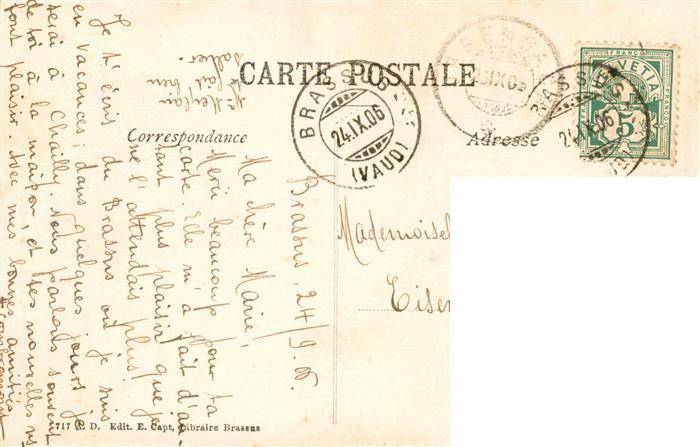 CARTE POSTALE
Correspondance
Adresse
BRASSUS
24.IX.06
(VAUD)
GENÈVE
IX.06
BRASSUS
24.IX.06
FRANCO
HELVETIA
5
Mademoisel
Eisen
Brassus, 24/9. 06
Ma chère Marie,
Merci beaucoup pour ta
carte. Elle m'a fait d'au
tant plus plaisir que je
ne l'attendais plus.
Je t'écris du Brassus où je suis
en vacances; dans quelques jours je
serai à Chailly. Nous parlons souvent
de toi à la maison, et tes nouvelles n/s
font plaisir. Avec mes bonnes amitiés
fait bien
717 C. D. Edit. E. Capt, Libraire Brassus